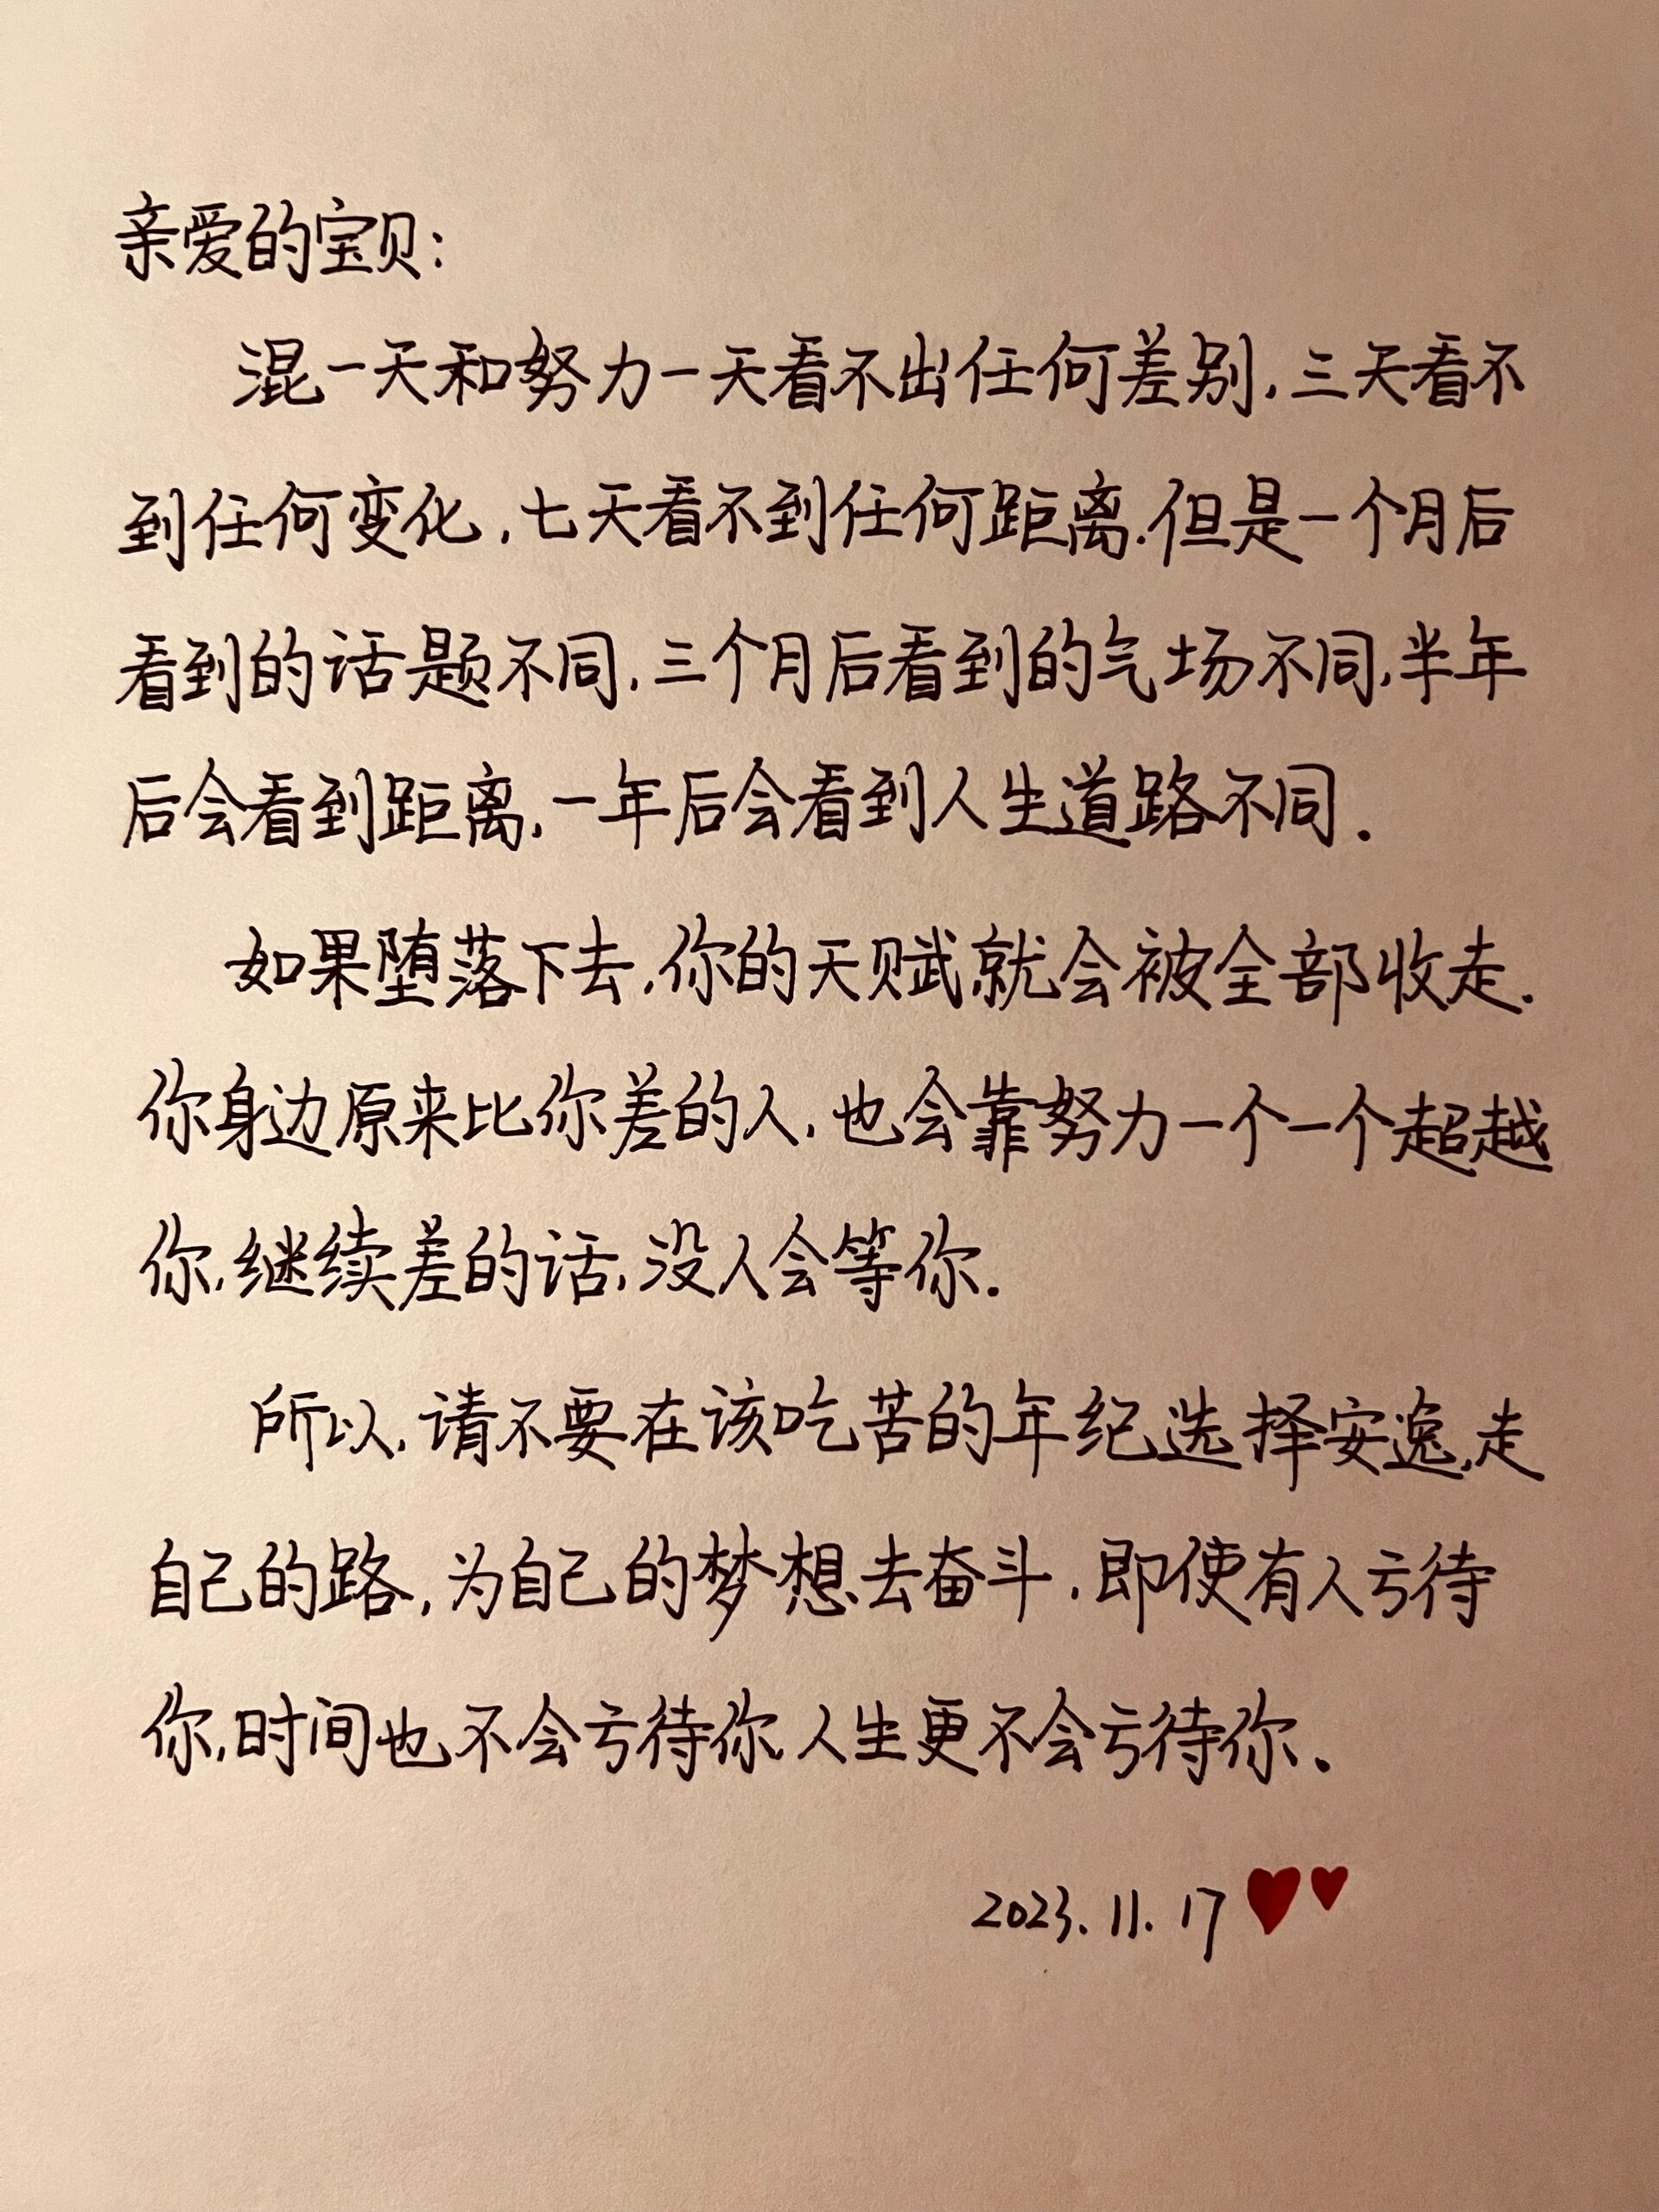 亲爱的宝贝:
混一天和努力一天看不出任何差别,三天看不
到任何变化,七天看不到任何距离.但是一个月后
看到的话题不同,三个月后看到的气场不同,半年
后会看到距离,一年后会看到人生道路不同.
如果堕落下去,你的天赋就会被全部收走.
你身边原来比你差的人,也会靠努力一个一个超越
你,继续差的话,没人会等你.
所以,请不要在该吃苦的年纪选择安逸,走
自己的路,为自己的梦想去奋斗,即使有人亏待
你,时间也不会亏待你,人生更不会亏待你.
2023.11.17